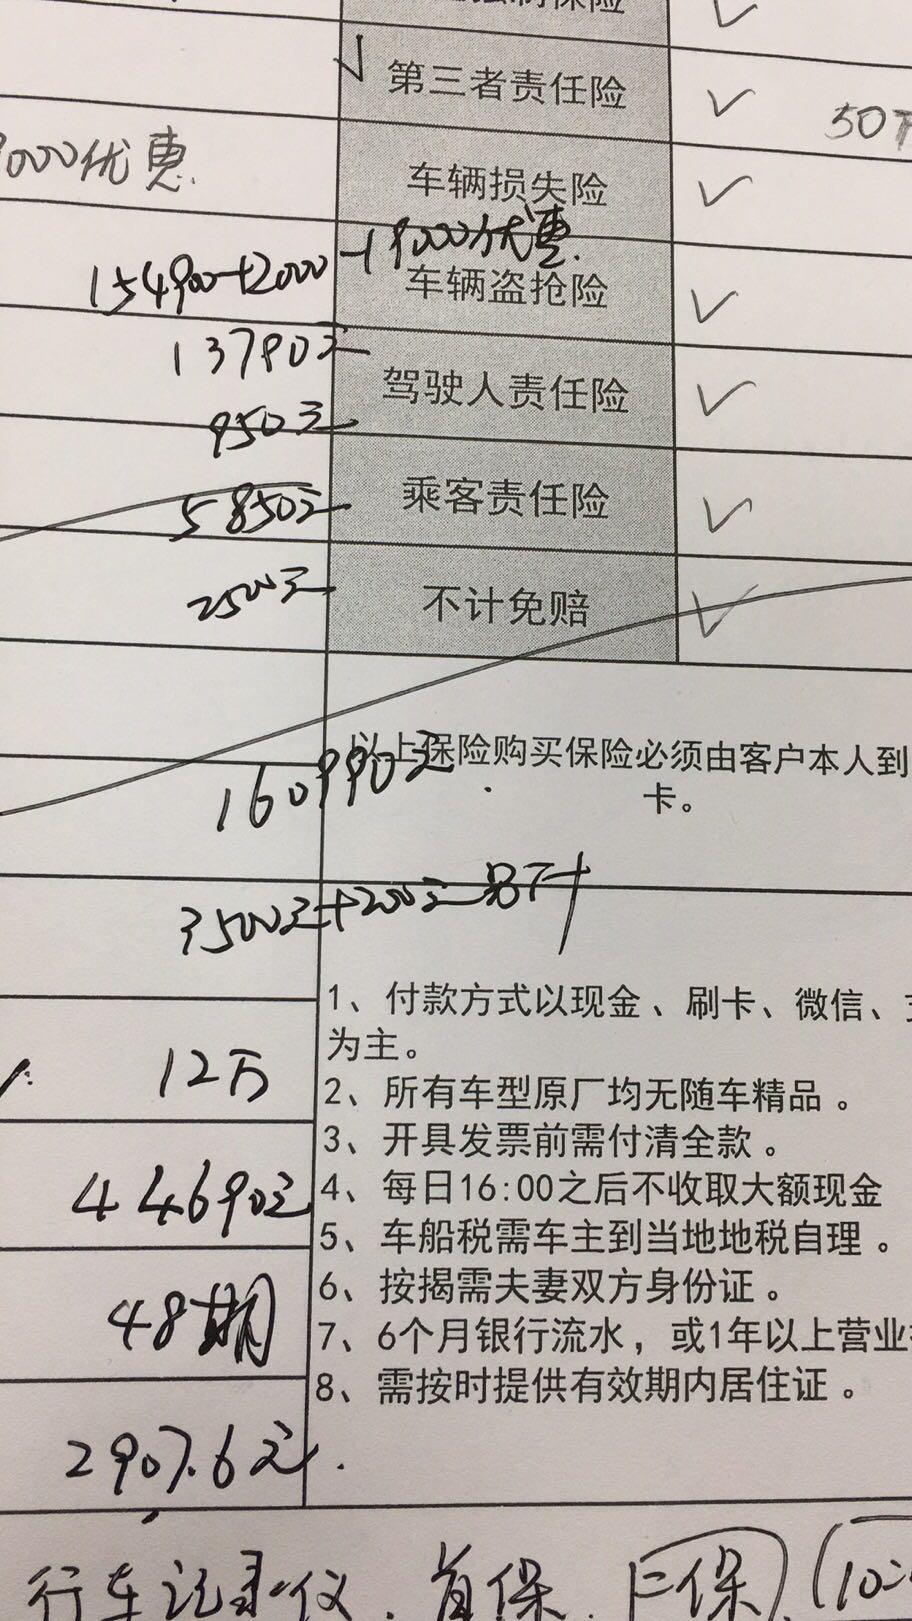 ✓
✓ 第三者责任险 ✓ 50万
9000优惠.
车辆损失险 ✓
154900+2000-19000优惠.
车辆盗抢险 ✓
137900元
驾驶人责任险 ✓
950元
5850元
乘客责任险 ✓
2500元
不计免赔 ✓
以上保险购买保险必须由客户本人到
卡。
160990元
3500元+200元 另计
1、付款方式以现金、刷卡、微信、
为主。
12万
2、所有车型原厂均无随车精品。
3、开具发票前需付清全款。
44690元
4、每日16:00之后不收取大额现金
5、车船税需车主到当地地税自理。
48期
6、按揭需夫妻双方身份证。
7、6个月银行流水，或1年以上营业
8、需按时提供有效期内居住证。
2907.6元.
行车记录仪. 首保. 二保